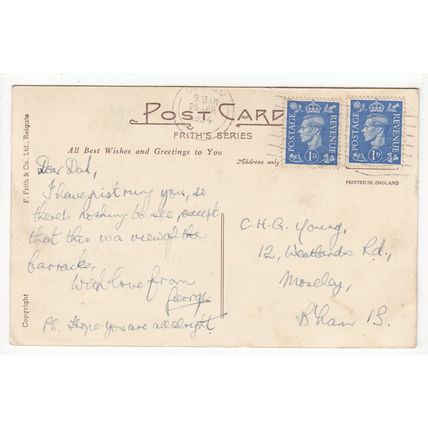 9 30 AM
POST CARD
FRITH'S SERIES
All Best Wishes and Greetings to You
Address only
POSTAGE REVENUE
1D
POSTAGE REVENUE
1D
PRINTED IN ENGLAND
F. Frith & Co. Ltd., Reigate
Copyright
Dear Dad,
I have just rung you, so
there's nothing to see, except
that this is a view of the
barracks.
With love from
George
P.S. Hope you are all alright
C.H.G. Young,
12, Westlands Rd.,
Moseley,
B'ham 13.